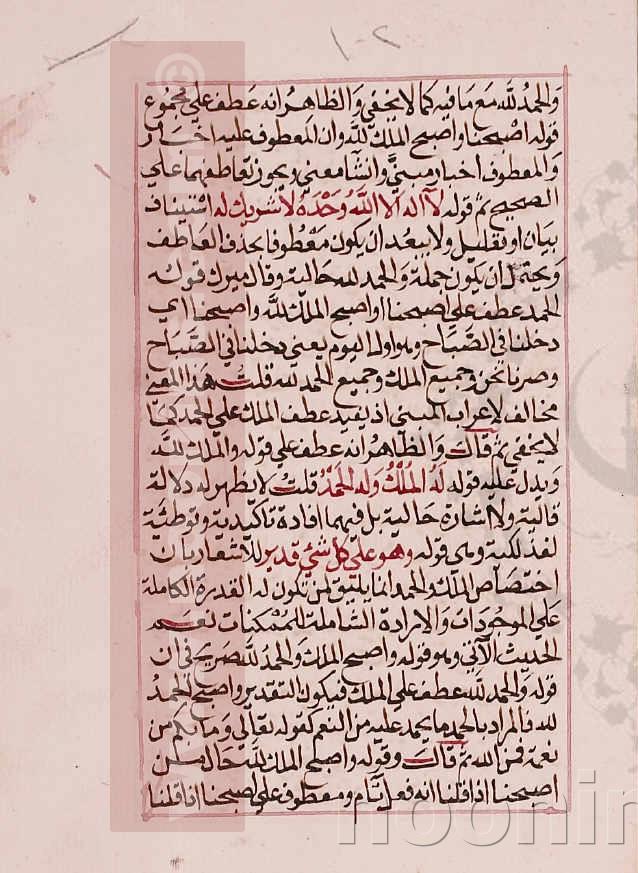 ١٠٢
والحمد لله مع ما فيه كما لا يخفى والظاهر انه عطف على مجموع
قوله اصبحنا واصبح الملك لله وان المعطوف عليه اخبار
والمعطوف اخبار مبنىً وانشآ معنى ويجوز تعاطفهما على
الصحيح ثم قوله لا اله الا الله وحده لا شريك له استيناف
بيان او تعليل ولا يبعد ان يكون معطوفا بحذف العاطف
ويحتمل ان يكون جملة والحمد لله حالية وقال ميرك قوله
الحمد عطف على اصبحنا او اصبح الملك لله واصبحنا اى
دخلنا فى الصباح وهو اول اليوم يعنى دخلنا فى الصباح
وصرنا نحن وجميع الملك وجميع الحمد لله قلت هذا المعنى
مخالف لاعراب المبنى اذ يفيد عطف الملك على الحمد كما
لا يخفى ثم قال والظاهر انه عطف على قوله والملك لله
ويدل عليه قوله له الملك وله الحمد قلت لا يظهر له دلالة
قالية ولا اشارة حالية بل فيهما افادة تاكيدية وتوطئية
لفذلكية وهى قوله وهو على كل شئ قدير للاشعار بان
اختصاص الملك والحمد انما يليق لمن تكون له القدرة الكاملة
على الموجودات والارادة الشاملة للممكنات نعم
الحديث الآتى وهو قوله واصبح الملك والحمد لله صريح فى ان
قوله والحمد لله عطف على الملك فيكون التقدير واصبح الحمد
لله فالمراد بالحمد ما يحمد عليه من النعم كقوله تعالى وما بكم من
نعمة فمن الله ثم قال وقوله واصبح الملك لله حال من
اصبحنا اذا قلنا انه فعل تام ومعطوف على اصبحنا اذا قلنا
noonir